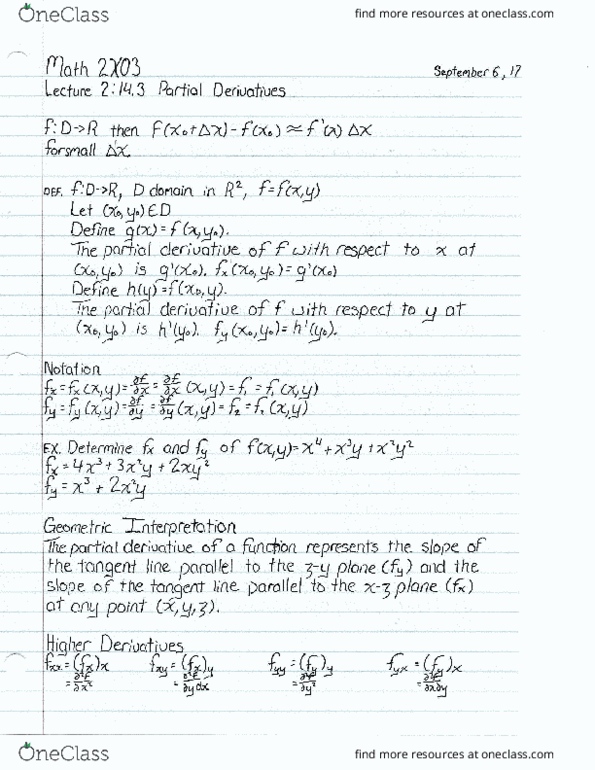 OneClass
find more resources at oneclass.com
Math 2X03
September 6, 17
Lecture 2: 14.3 Partial Derivatives
f: D→R then F(x₀+Δx)-f(x₀) ≈ f'(x) Δx
for small Δx.
DEF. f: D→R, D domain in R², f=f(x,y)
Let (x₀, y₀) ∈ D
Define g(x)=f(x,y₀).
The partial derivative of f with respect to x at
(x₀, y₀) is g'(x₀). fₓ'(x₀, y₀)=g'(x₀)
Define h(y)=f(x₀, y).
The partial derivative of f with respect to y at
(x₀, y₀) is h'(y₀). f_y(x₀, y₀)=h'(y₀).
Notation
fₓ = fₓ(x,y) = ∂f/∂x = ∂f/∂x (x,y) = f₁ = f₁(x,y)
f_y = f_y(x,y) = ∂f/∂y = ∂f/∂y (x,y) = f₂ = f₂(x,y)
EX. Determine fₓ and f_y of f(x,y)=x⁴+x³y+x²y²
fₓ = 4x³+3x²y+2xy²
f_y = x³ + 2x²y
Geometric Interpretation
The partial derivative of a function represents the slope of
the tangent line parallel to the z-y plane (f_y) and the
slope of the tangent line parallel to the x-z plane (fₓ)
at any point (x,y,z).
Higher Derivatives
fₓₓ = (fₓ)ₓ f_xy = (fₓ)_y f_yy = (f_y)_y f_yx = (f_y)ₓ
= ∂²f/∂x² = ∂²f/∂y∂x = ∂²f/∂y² = ∂²f/∂x∂y
OneClass
find more resources at oneclass.com